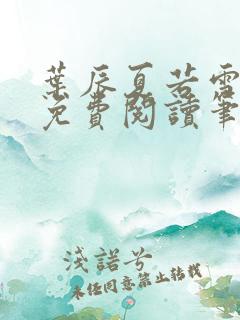 葉辰夏若雪
免費閱讀筆
淺諾兮
未經同意禁止轉載